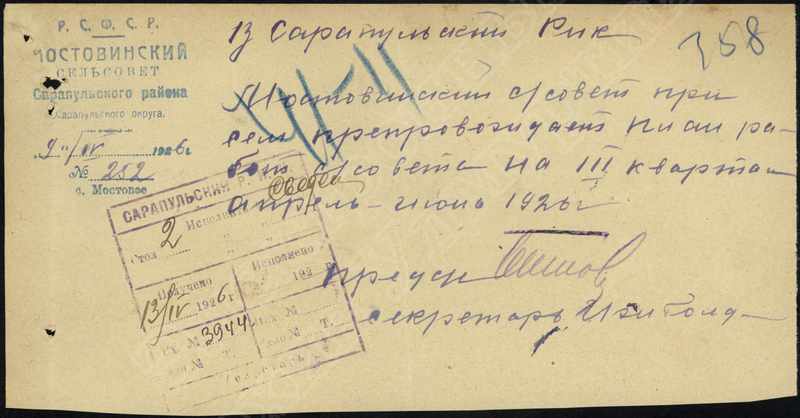 Р. С. Ф. С. Р.
МОСТОВИНСКИЙ
СЕЛЬСОВЕТ
Сарапульского района
Сарапульского округа.
9 "/IV 1926 г.
№ 252
с. Мостовое
В Сарапульский Рик
358
Мостовинский с/совет при
сем препровождает план ра-
бот с/совета на III квартал
апрель-июнь 1926 г
Предс
секретарь
САРАПУЛЬСКИЙ Р.
Стол 2 Исполнит
Получено
13/IV 1926 г.
Исполнено
192 г.
Вх. № 3944
Исх. №
Дело № Т.
Дело № Т.